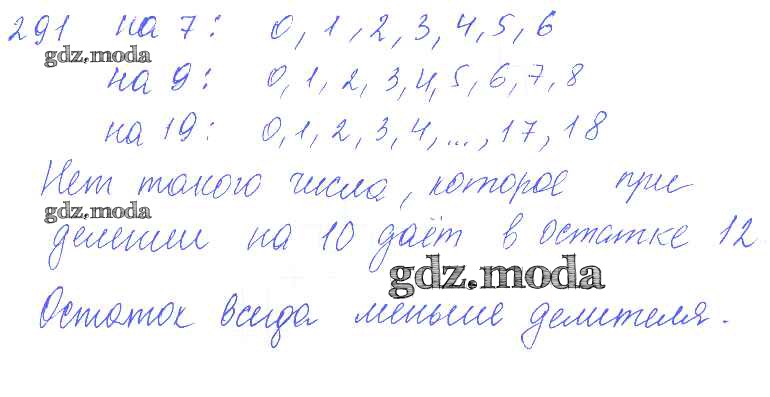 291 на 7: 0, 1, 2, 3, 4, 5, 6
gdz.moda
на 9: 0, 1, 2, 3, 4, 5, 6, 7, 8
на 19: 0, 1, 2, 3, 4, ..., 17, 18
Нет такого числа, которое при
gdz.moda
делении на 10 даёт в остатке 12
gdz.moda
Остаток всегда меньше делителя.